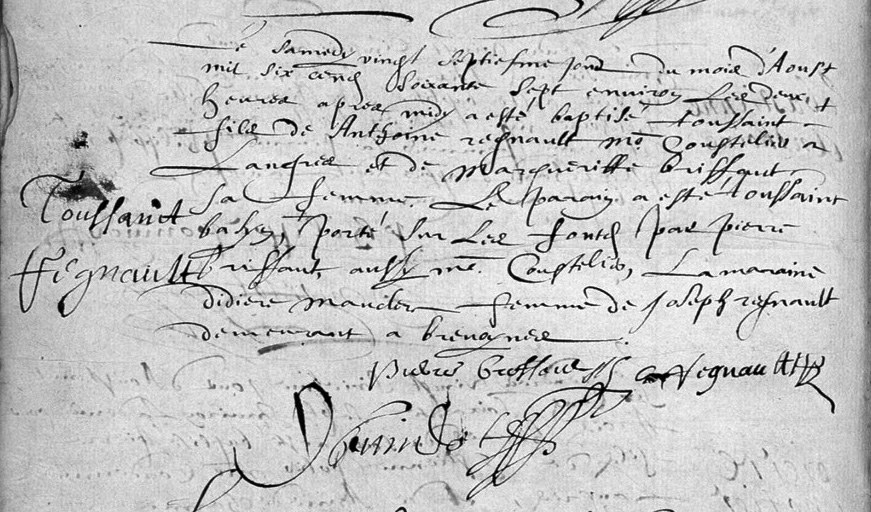 Le samedy vingt septiesme jour du mois d'Aoust
mil six cens soixante sept environ les deux
heures apres midy a esté baptisé toussaint
fils de Anthoine regnault me Coustelier a
Langres et de Margueritte brissaut
sa femme. Le parain a esté toussaint
porté sur Les fonds par pierre
brissaut, aussy me. Coustelier, La maraine
didiere mauclere femme de joseph regnault
demeurant a brevoynes
Toussainct
Regnault
Pierre A Regnault